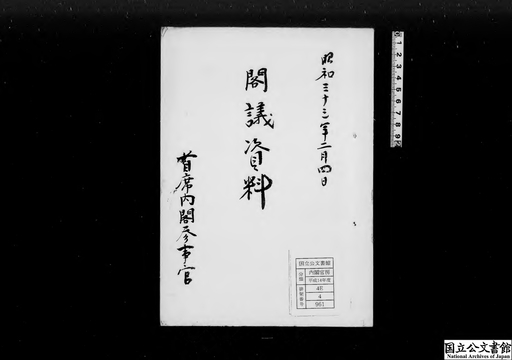 昭和三十三年二月四日
閣議資料
首席内閣参事官
国立公文書館
分類
内閣官房
平成14年度
4E
4
981
国立公文書館
National Archives of Japan